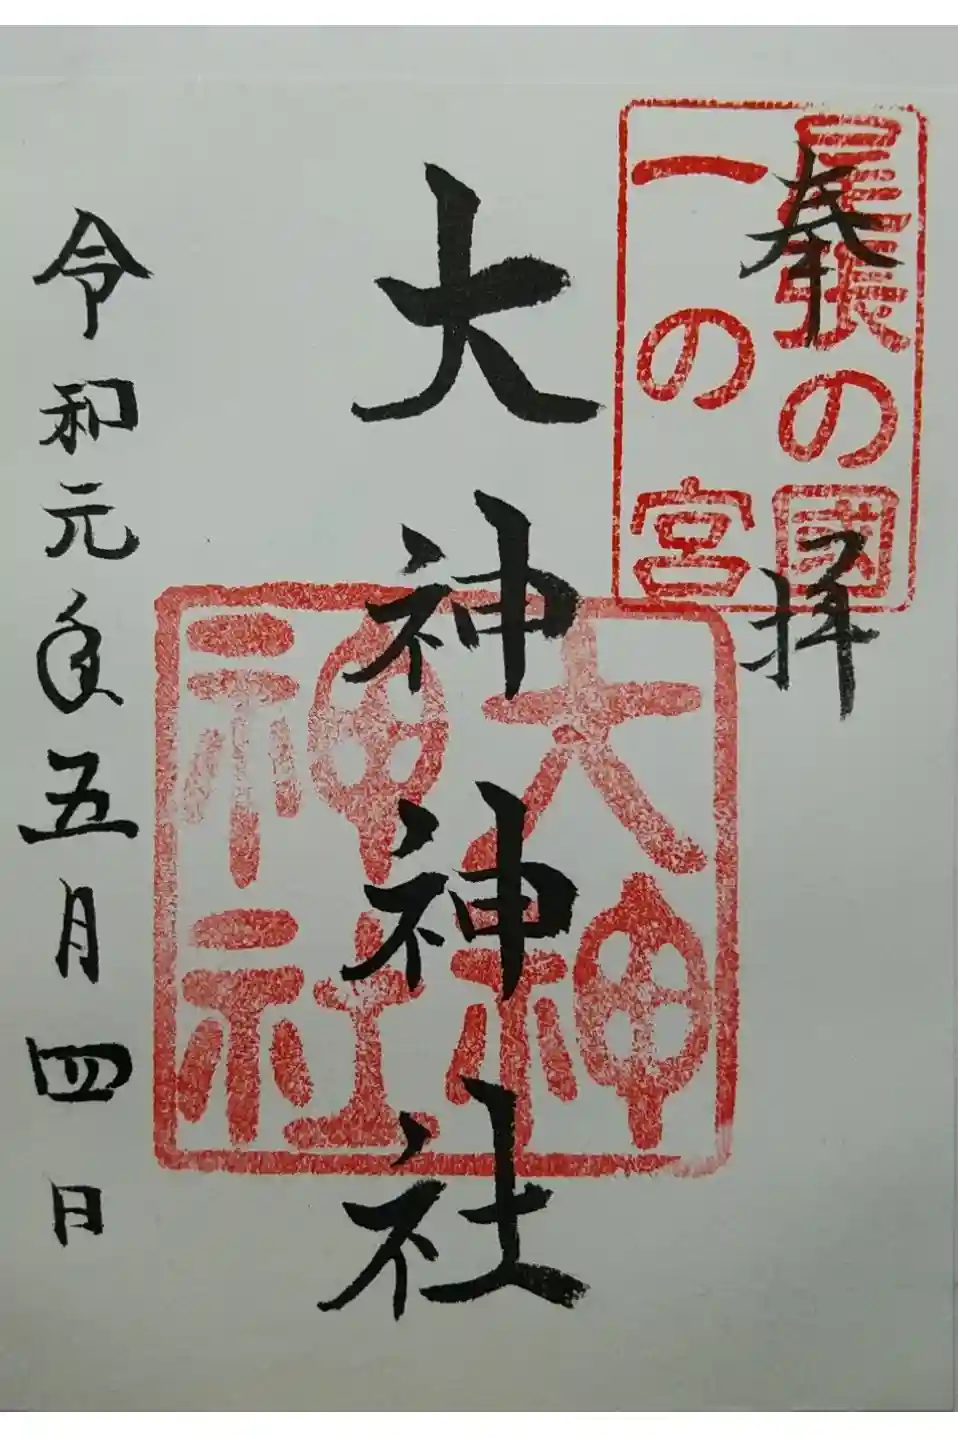 奉拝
尾張の國
一の宮
大神神社
大神
神社
令和元年五月四日